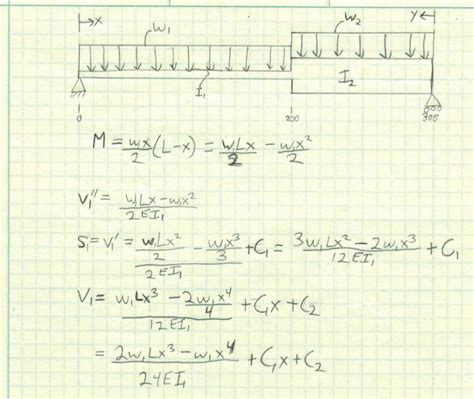 →x w₁ w₂ y←
I₁ I₂
0 200 300
M = w₁x/2 (L-x) = w₁Lx/2 - w₁x²/2
v₁'' = (w₁Lx - w₁x²)/2EI₁
S₁ = v₁' = (w₁Lx²/2 - w₁x³/3)/2EI₁ + C₁ = (3w₁Lx² - 2w₁x³)/12EI₁ + C₁
V₁ = (w₁Lx³ - 2w₁x⁴/4)/12EI₁ + C₁x + C₂
= (2w₁Lx³ - w₁x⁴)/24EI₁ + C₁x + C₂